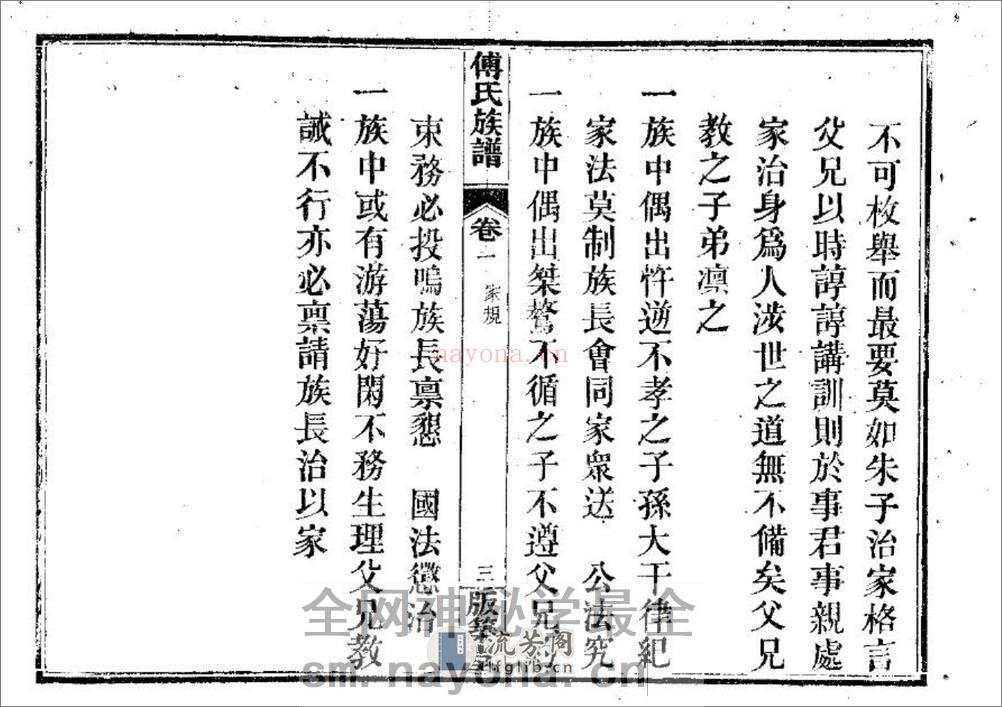 不可枚舉而最要莫如朱子治家格言
父兄以時諄諄講訓則於事君事親處
家治身爲人涉世之道無不備矣父兄
教之子弟凛之
一族中偶出忤逆不孝之子孫大干律紀
家法莫制族長會同家衆送 公法究
一族中偶出桀驁不循之子不遵父兄
傅氏族譜 卷一 家規 三 版築
束務必投鳴族長禀懇 國法懲治
一族中或有游蕩好閑不務生理父兄教
誡不行亦必禀請族長治以家
nayona.cn
全网神秘学最全
流芳阁
lfglib.cn
sm.nayona.cn